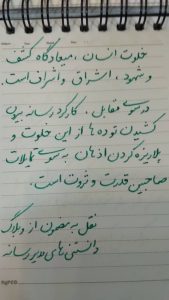 خلوت انسان ، میعادگاه کشف
و شهود ، اشراق و اشراف است.
در سوی مقابل ، کارکرد رسانه بیرون
کشیدن توده ها از این خلوت و
پلاریزه کردن اذهان به سوی تمایلات
صاحبین قدرت و ثروت است.
نقل به مضمون از وبلاگ
دانستنی های مدیر رسانه